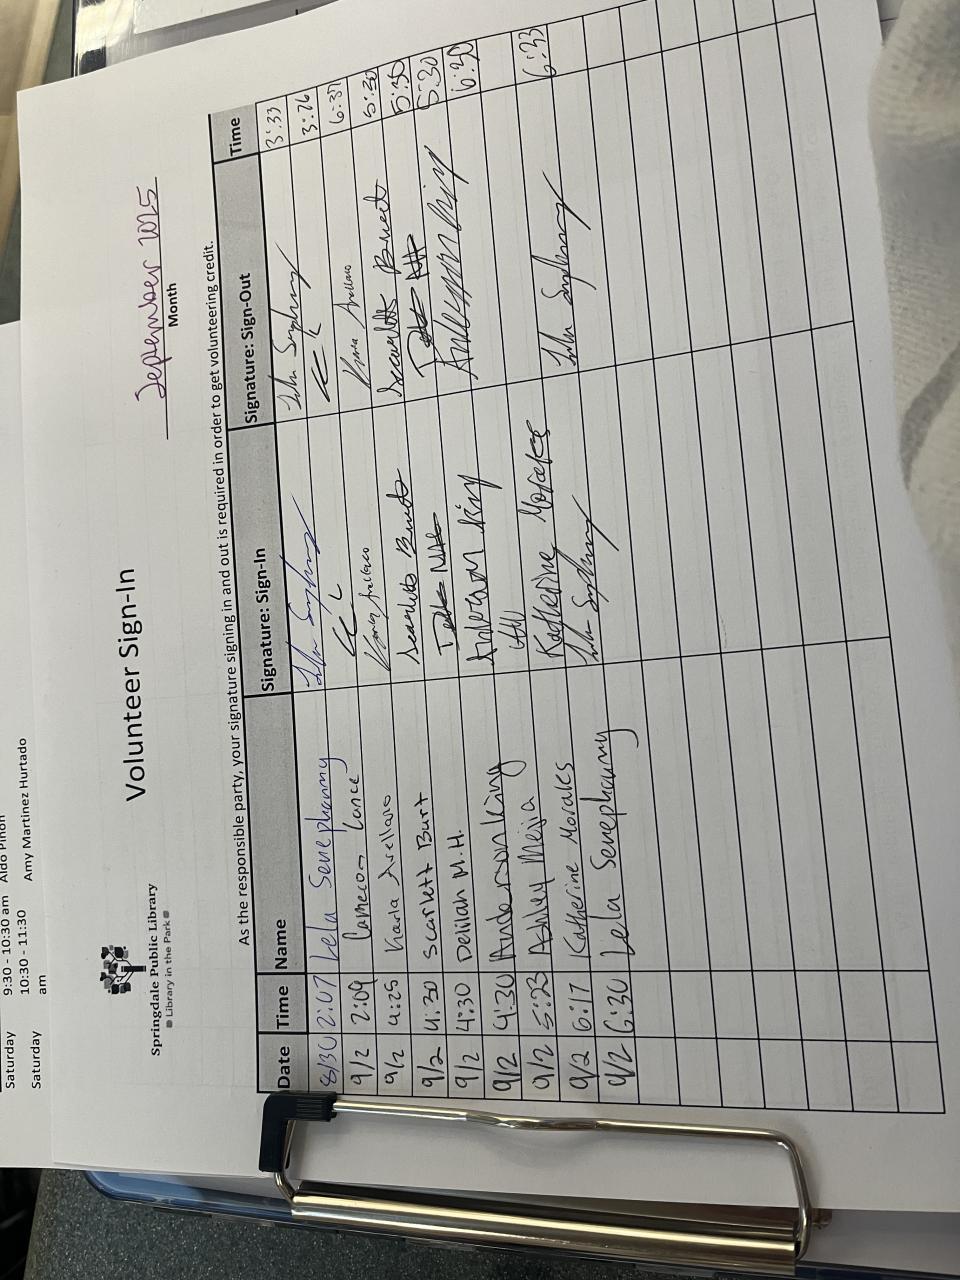 Saturday 9:30 - 10:30 am Aldo Piñon
Saturday 10:30 - 11:30 am Amy Martinez Hurtado
Springdale Public Library
Library in the Park
Volunteer Sign-In
September 2025
Month
As the responsible party, your signature signing in and out is required in order to get volunteering credit.
Date Time Name Signature: Sign-In Signature: Sign-Out Time
8/30 2:07 Lela Senephanny 3:33
9/2 2:09 Cameron Lance 3:26
9/2 4:25 Karla Arellano Karla Arellano Karla Arellano 6:37
9/2 4:30 Scarlett Burt Scarlett Burt Scarlett Burt 5:30
9/2 4:30 Delilah M.H. 5:30
9/2 4:30 Anderson King Anderson King Anderson King 5:30
9/2 5:23 Ashley Mejia AM 6:30
9/2 6:17 Katherine Morales Katherine Morales
9/2 6:30 Lela Senephanny 6:33